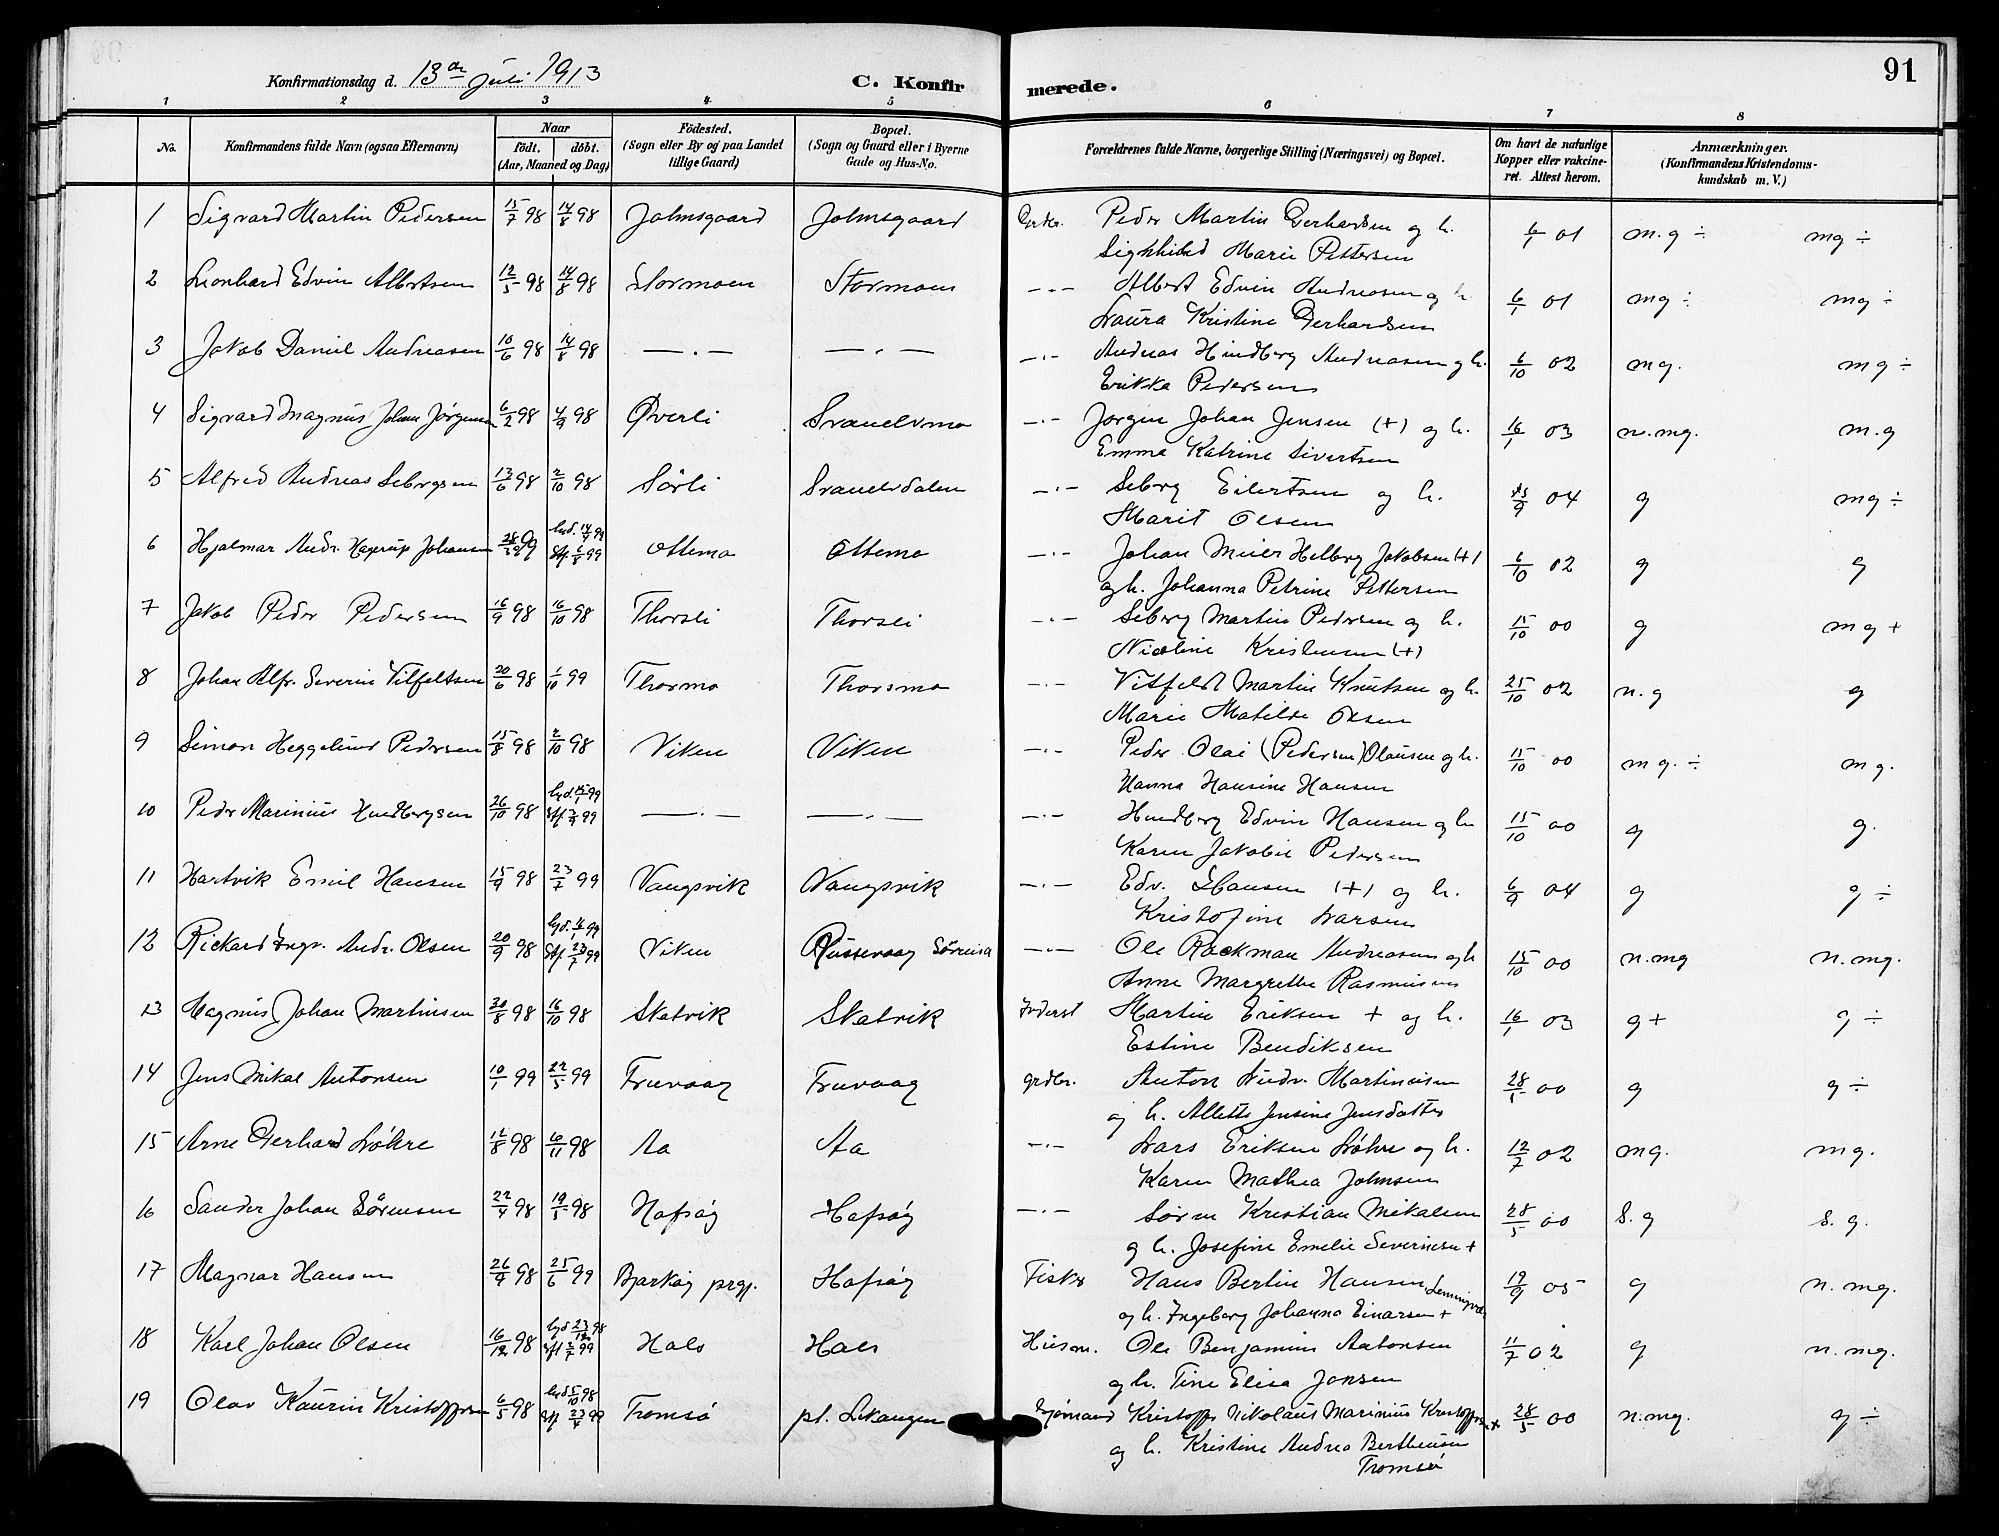 91
Konfirmationsdag d. 13de Juli 1913
C. Konfirmerede.
1 2 3 4 5 6 7 8
No.
Konfirmandens fulde Navn (ogsaa Efternavn)
Naar
födt. döbt.
(Aar, Maaned og Dag)
Födested.
(Sogn eller By og paa Landet
tillige Gaard)
Bopæl.
(Sogn og Gaard eller i Byerne
Gade og Hus-No.
Forældrenes fulde Navne, borgerlige Stilling (Næringsvei) og Bopæl.
Om havt de naturlige
Kopper eller vakcine-
ret. Attest herom.
Anmærkninger.
(Konfirmandens Kristendoms-
kundskab m. V.)
1 Sigvard Martin Pedersen 15/7 98 14/8 98 Johnsgaard Johnsgaard Peder Martin Gerhardsen og h. 6/1 01 m.g ÷ mg ÷
Marie Pettersen
2 Leonhard Edvin Albertsen 12/5 98 14/8 98 Stormoen Stormoen —.— Albert Edvin Andreasen og h. 6/1 01 mg ÷ mg ÷
Laura Kristine Gerhardsen
3 Jakob Daniel Andreasen 10/6 98 14/8 98 —.— —.— —.— Andreas Hindberg Andreasen og h. 6/10 02 mg. mg ÷
Erikka Pedersen
4 Sigvard Magnus Johan Jørgensen 6/2 98 4/9 98 Øverli Svanelvmo —.— Jørgen Johan Jensen (+) og h. 16/1 03 n.mg. m.g
Emma Katrine Sivertsen
5 Alfred Andreas Sebergsen 13/6 98 2/10 98 Sörli Svanelvdalen —.— Seberg Eilertsen og h. 04 g mg ÷
Marit Olsen
6 Hjalmar Andr. Hagerup Johansen 99 Ottemo Ottemo —.— Johan Meier Helberg Jakobsen (+) 6/10 02 g g
og h. Johanna Petrine Pettersen
7 Jakob Peder Pedersen 16/9 98 16/10 98 Thorsli Thorsli —.— Seberg Martin Pedersen og h. 15/10 00 g mg +
Nicoline Kristensen (+)
8 Johan Alfr. Severin Vitfeltsen 20/6 98 1/10 99 Thormo Thorsmo —.— Vitfeldt Martin Knutsen og h. 25/10 02 n.g g
Marie Matilde Olsen
9 Simon Heggelund Pedersen 15/8 98 2/10 98 Viken Viken —.— Peder Olai (Pedersen) Olausen og h. 15/10 00 mg. ÷ mg.
Hanna Hansine Hansen
10 Peder Marinius Hindbergsen 26/10 98 —.— —.— —.— Hindberg Edvin Hansen og h 15/10 00 g g.
Karen Jakobie Pedersen
11 Hartvik Emil Hansen 15/9 98 23/7 99 Vangsvik Vangsvik —.— Edv. Hansen (+) og h. 6/9 04 g g ÷
Kristofine Larsen
12 Rickard Ingv. Andr. Olsen 20/9 98 Viken Russevaag Sörreisa —.— Ole Rackman Andreasen og h 15/10 00 n.mg n.mg.
Anne Margrethe Rasmussen
13 Magnus Johan Martinsen 98 16/10 98 Skatvik Skatvik Inderst Martin Eriksen + og h. 16/1 03 g + g ÷
Estine Bendiksen
14 Jens Mikal Antonsen 10/1 99 22/5 99 Truvaag Truvaag grdbr. Anton Andr. Martinusen 28/5 00 g g ÷
og h. Allette Jensine Jensdatter
15 Arne Gerhard Løhre 98 6/11 98 Aa Aa —.— Lars Eriksen Løhre og h. 12/7 02 mg. mg.
Karen Mathea Johnsen
16 Sander Johan Sörensen 22/4 98 19/5 98 Hofsøy Hofsøy —.— Sören Kristian Mikalsen 28/5 00 S.g S.g.
og h. Josefine Emelie Severinsen +
17 Magnar Hansen 98 25/6 99 Bjarkøy prgj. Hofsøy Fisker Hans Bertin Hansen 19/9 05 g n.mg.
og h. Ingeborg Johanna Einarsen +
18 Karl Johan Olsen 16/12 98 hjd 23/12 98 Hals Hals Husm. Ole Benjamin Antonsen 11/7 02 g n.mg.
og h. Tine Elisa Jonsen
19 Olav Kaurin Kristoffersen 6/5 98 hjd 5/10 98 Tromsö pl. Lekangen Sjømand Kristoffer Nikolaus Marinius Kristoffersen + 28/5 00 n.mg. g ÷
og h. Kristine Andrea Bertheusen
Tromsö